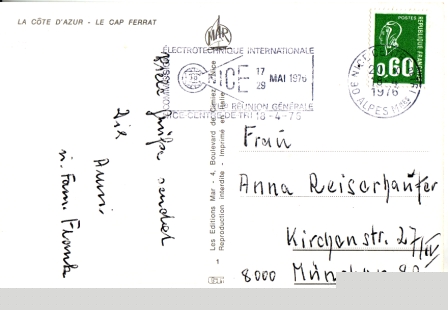 LA CÔTE D'AZUR - LE CAP FERRAT
MAR
POSTES
REPUBLIQUE FRANÇAISE
0,60
ÉLECTROTECHNIQUE INTERNATIONALE
COMMISSION
CEI
17
29 MAI 1976
RÉUNION GÉNÉRALE
NICE CENTRE DE TRI 18-4-76
1976
ALPES MMES
Les Editions Mar - 4, Boulevard de Cessole, Nice
Reproduction interdite - Imprimé en Italie
1
Viele Grüße sendet
Dir
Anni
u. Fam. Frank
Frau
Anna Reiserhaufer
Kirchenstr. 27/IV
8000 München 80